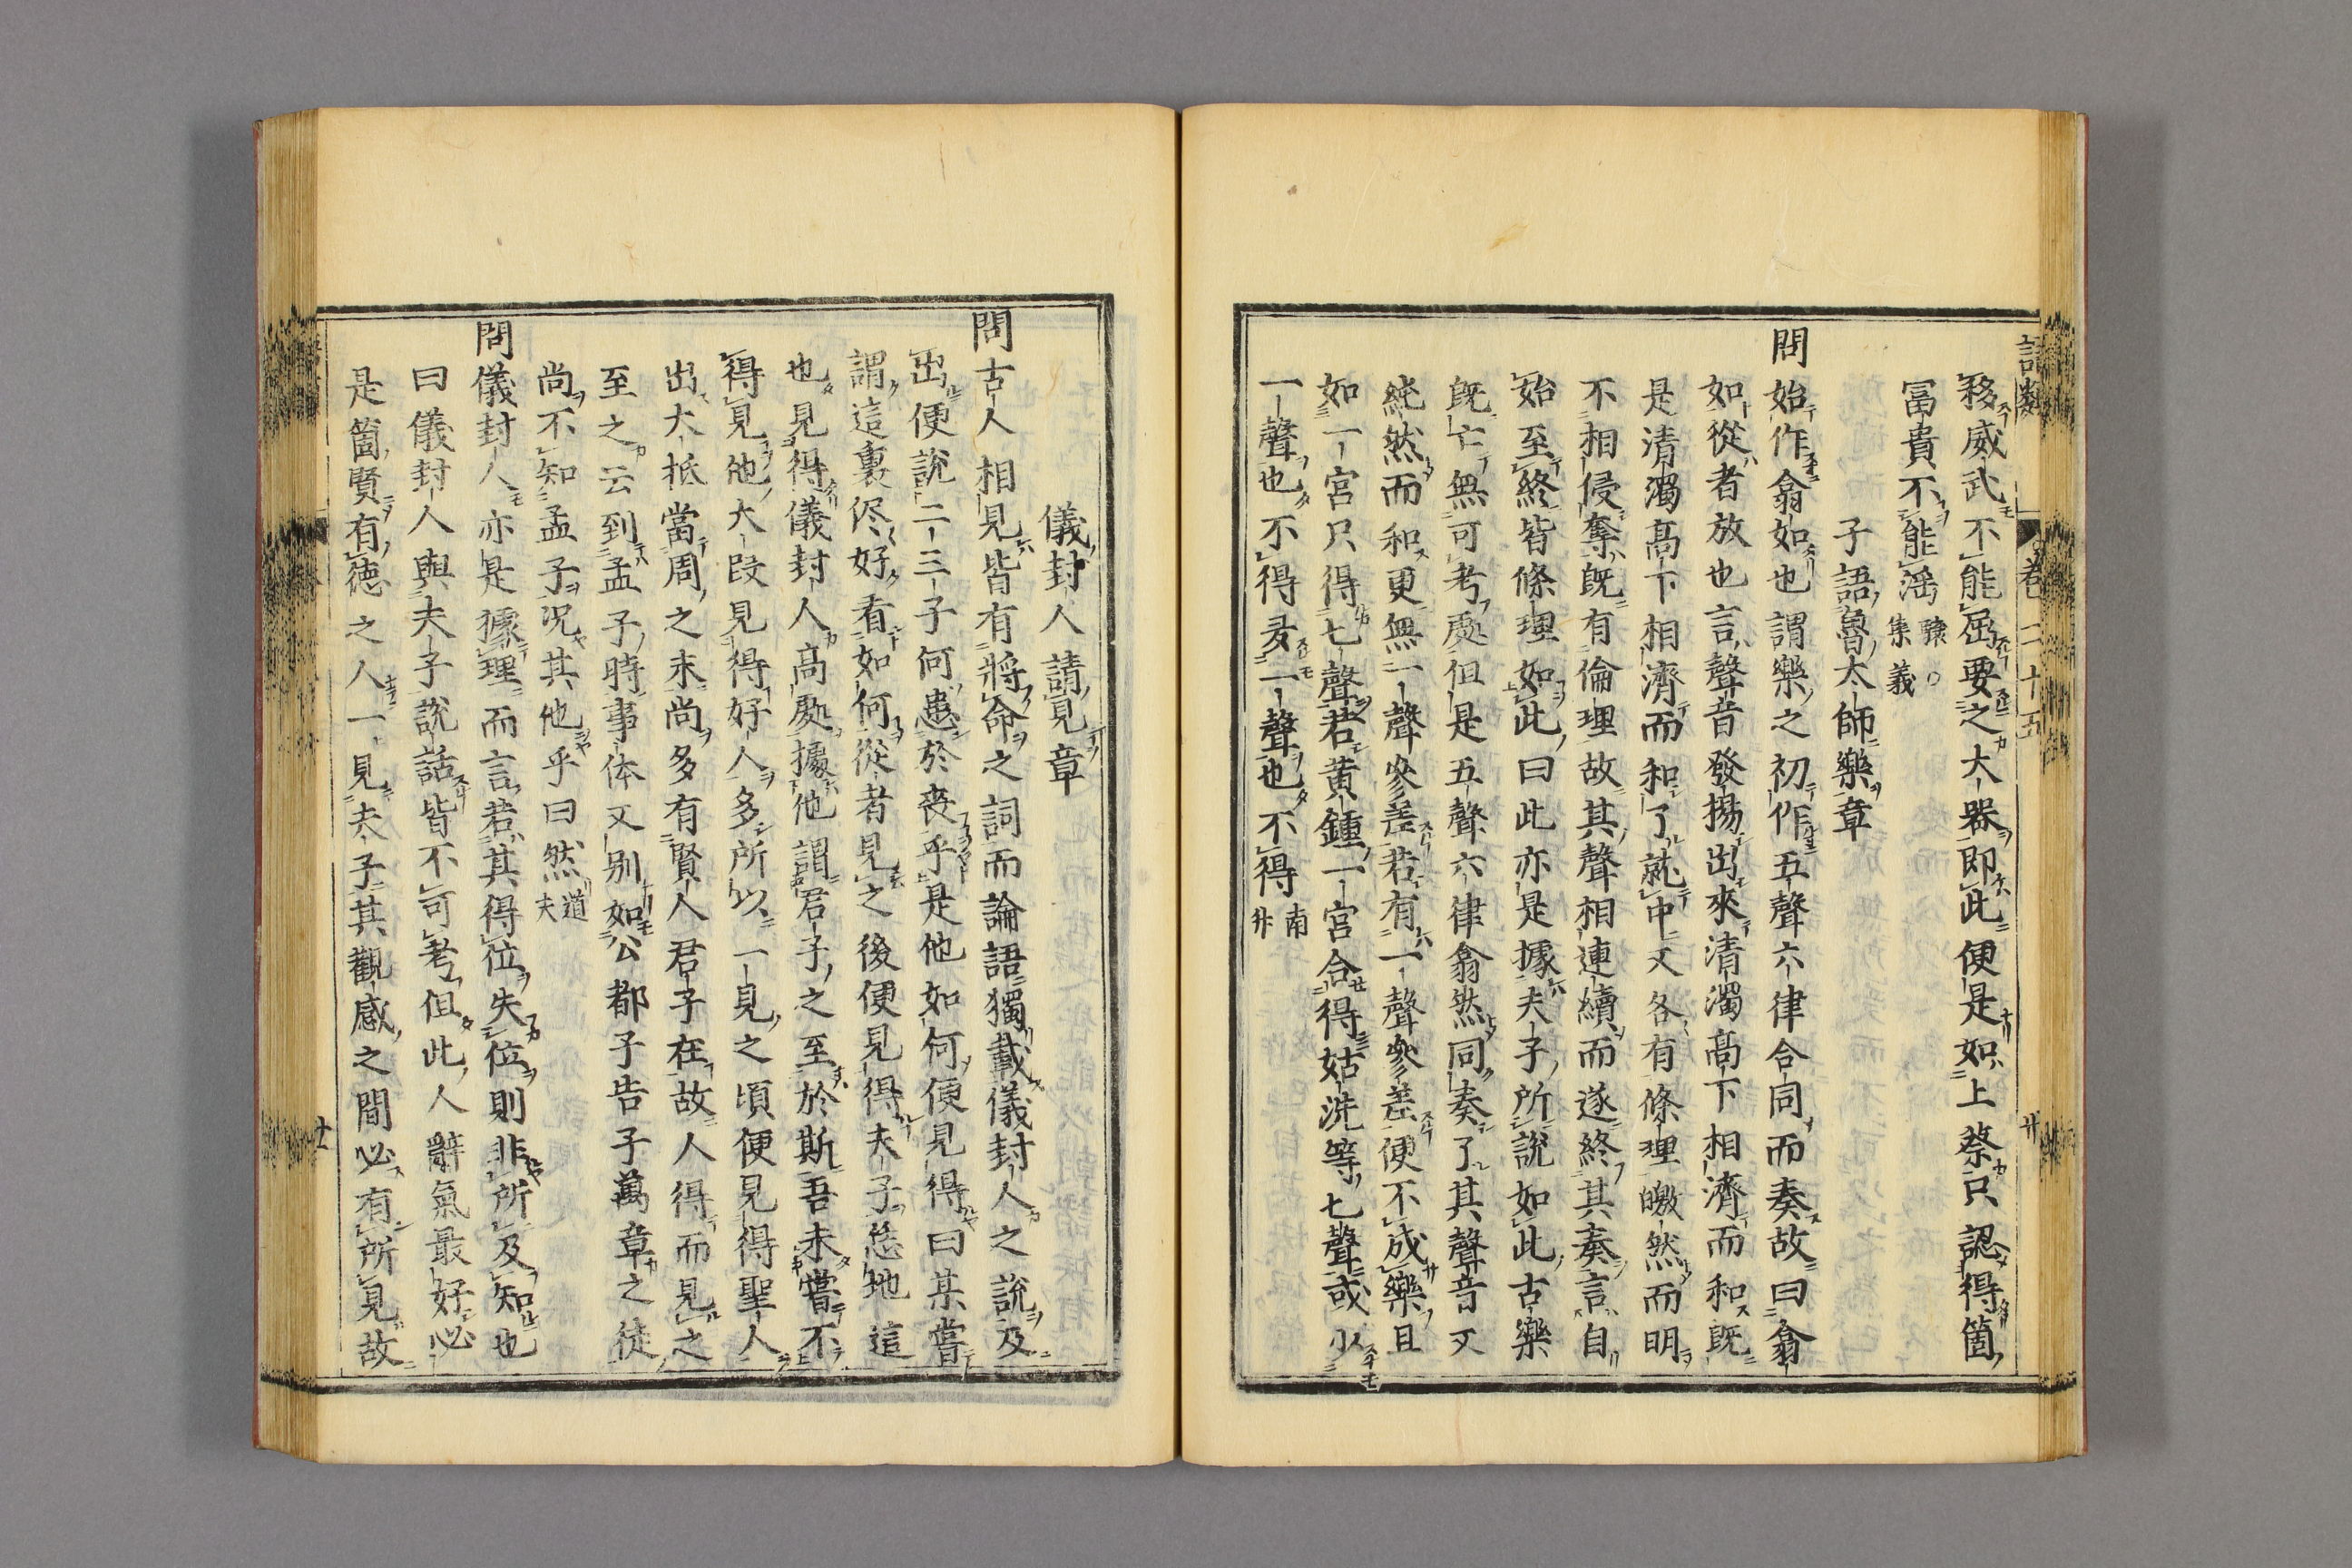 語類 卷二十五 廿
移威武不能屈要之大器即此便是如上蔡只認得箇
冨貴不能滛 驤○集義
子語魯太師樂章
問始作翕如也謂樂之初作五聲六律合同而奏故曰翕
如從者放也言聲音發揚出來清濁髙下相濟而和既
是清濁髙下相濟而和了就中又各有條理皦然而明
不相侵奪既有倫理故其聲相連續而遂終其奏言自
始至終皆條理如此曰此亦是據夫子所說如此古樂
既亡無可考處但是五聲六律翕然同奏了其聲音又
純然而和更無一聲參差若有一聲參差便不成樂且
如一宮只得七聲若黄鍾一宮合得姑洗等七聲或少
一聲也不得多一聲也不得 南升
儀封人請見章
問古人相見皆有將命之詞而論語獨載儀封人之說及
出便說二三子何患於喪乎是他如何便見得曰某嘗
謂這裏侭好看如何從者見之後便見得夫子恁地這
也見得儀封人髙處據他謂君子之至於斯吾未嘗不
得見他大段見得好人多所以一見之頃便見得聖人
出大抵當周之末尚多有賢人君子在故人得而見之
至之云到孟子時事体又别如公都子告子萬章之徒
尚不知孟子況其他乎曰然 道夫
問儀封人亦是據理而言若其得位失位則非所及知也
曰儀封人與夫子說話皆不可考但此人辭氣最好必
是箇賢有徳之人一見夫子其觀感之間必有所見故
廿